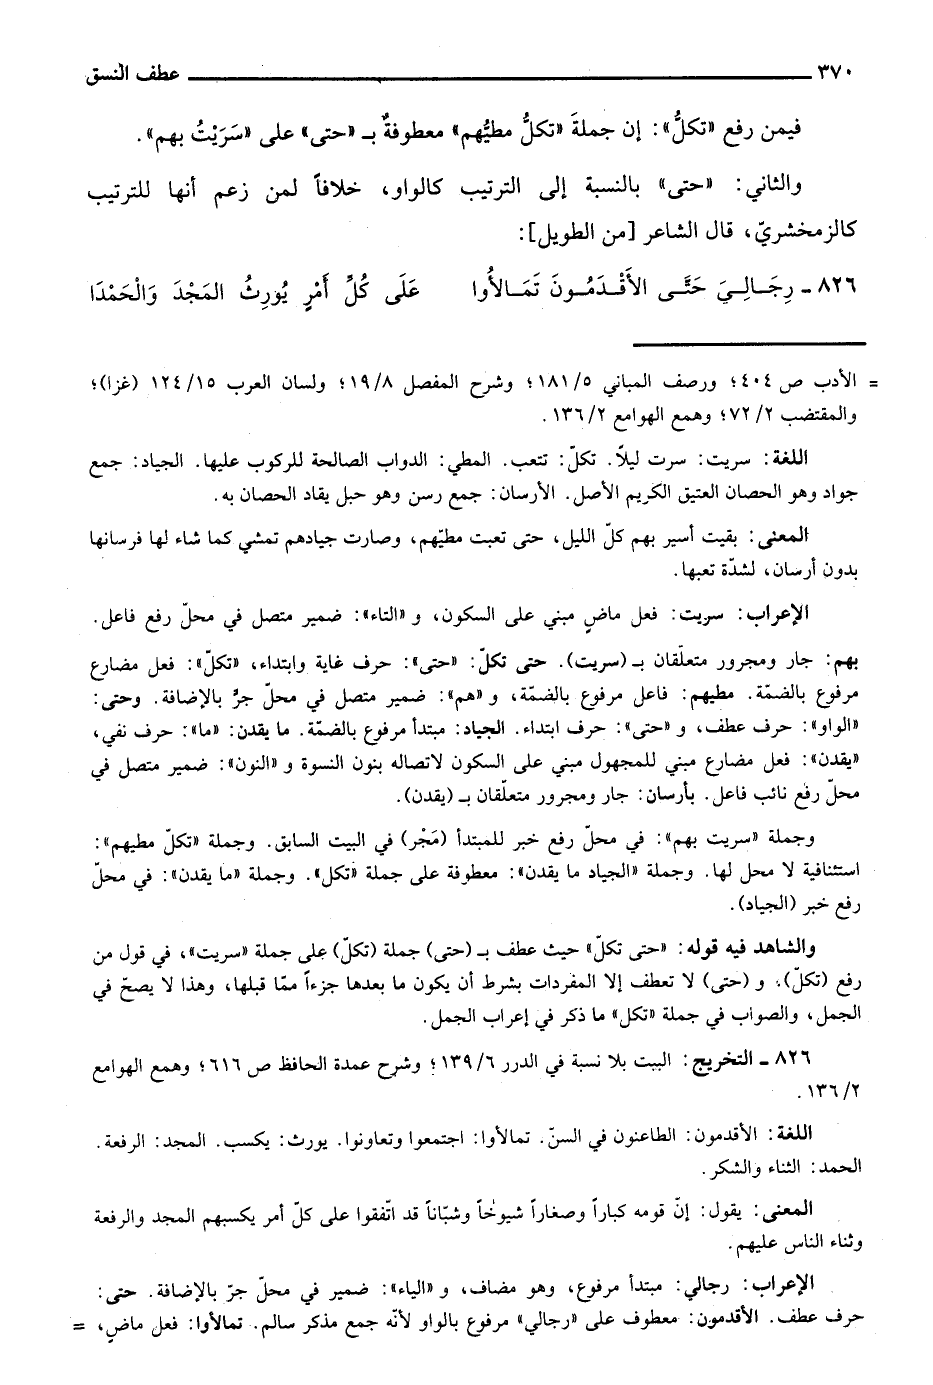 ٣٧٠ عطف النسق
فيمن رفع «تكلُّ»: إن جملةَ «تكلُّ مطيُّهم» معطوفةٌ بـ «حتى» على «سَرَيْتُ بهم».
والثاني: «حتى» بالنسبة إلى الترتيب كالواو، خلافاً لمن زعم أنها للترتيب
كالزمخشريّ، قال الشاعر [من الطويل]:
٨٢٦ ـ رِجَـالِـيَ حَتَّـى الأَقْـدَمُـونَ تَمَـالأُوا عَلَى كُلِّ أَمْرٍ يُورِثُ المَجْدَ وَالْحَمْدَا
= الأدب ص ٤٠٤؛ ورصف المباني ١٨١/٥؛ وشرح المفصل ١٩/٨؛ ولسان العرب ١٢٤/١٥ (غزا)؛
والمقتضب ٧٢/٢؛ وهمع الهوامع ١٣٦/٢.
اللغة: سريت: سرت ليلًا. تكلّ: تتعب. المطي: الدواب الصالحة للركوب عليها. الجياد: جمع
جواد وهو الحصان العتيق الكريم الأصل. الأرسان: جمع رسن وهو حبل يقاد الحصان به.
المعنى: بقيت أسير بهم كلّ الليل، حتى تعبت مطيّهم، وصارت جيادهم تمشي كما شاء لها فرسانها
بدون أرسان، لشدّة تعبها.
الإعراب: سريت: فعل ماضٍ مبني على السكون، و «التاء»: ضمير متصل في محلّ رفع فاعل.
بهم: جار ومجرور متعلّقان بـ (سريت). حتى تكلّ: «حتى»: حرف غاية وابتداء، «تكلّ»: فعل مضارع
مرفوع بالضمّة. مطيهم: فاعل مرفوع بالضمّة، و «هم»: ضمير متصل في محلّ جرّ بالإضافة. وحتى:
«الواو»: حرف عطف، و «حتى»: حرف ابتداء. الجياد: مبتدأ مرفوع بالضمّة. ما يقدن: «ما»: حرف نفي،
«يقدن»: فعل مضارع مبني للمجهول مبني على السكون لاتصاله بنون النسوة و «النون»: ضمير متصل في
محلّ رفع نائب فاعل. بأرسان: جار ومجرور متعلّقان بـ (يقدن).
وجملة «سريت بهم»: في محلّ رفع خبر للمبتدأ (مَجْر) في البيت السابق. وجملة «تكلّ مطيهم»:
استئنافية لا محل لها. وجملة «الجياد ما يقدن»: معطوفة على جملة «تكل». وجملة «ما يقدن»: في محلّ
رفع خبر (الجياد).
والشاهد فيه قوله: «حتى تكلّ» حيث عطف بـ (حتى) جملة (تكلّ) على جملة «سريت»، في قول من
رفع (تكلّ)، و (حتى) لا تعطف إلا المفردات بشرط أن يكون ما بعدها جزءاً ممّا قبلها، وهذا لا يصحّ في
الجمل، والصواب في جملة «تكل» ما ذكر في إعراب الجمل.
٨٢٦ ـ التخريج: البيت بلا نسبة في الدرر ١٣٩/٦؛ وشرح عمدة الحافظ ص ٦١٦؛ وهمع الهوامع
١٣٦/٢.
اللغة: الأقدمون: الطاعنون في السنّ. تمالأوا: اجتمعوا وتعاونوا. يورث: يكسب. المجد: الرفعة.
الحمد: الثناء والشكر.
المعنى: يقول: إنّ قومه كباراً وصغاراً شيوخاً وشبّاناً قد اتّفقوا على كلّ أمر يكسبهم المجد والرفعة
وثناء الناس عليهم.
الإعراب: رجالي: مبتدأ مرفوع، وهو مضاف، و «الياء»: ضمير في محلّ جرّ بالإضافة. حتى:
حرف عطف. الأقدمون: معطوف على «رجالي» مرفوع بالواو لأنّه جمع مذكر سالم. تمالأوا: فعل ماضٍ، =